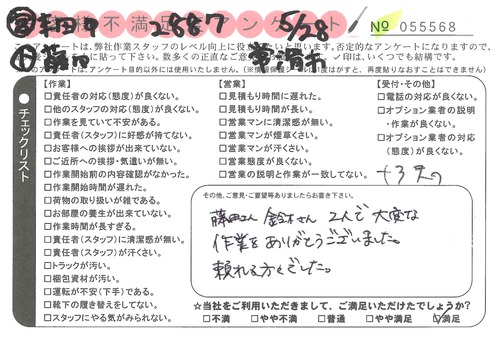 様不満足 アンケート
2887 5/28
№ 055568
アンケートは、弊社作業スタッフのレベル向上に役
チェックリスト
【作業】
□責任者の対応(態度)が良くない。
□他のスタッフの対応(態度)が良くない。
□作業を見ていて不安がある。
□責任者(スタッフ)に好感が持てない。
□お客様への挨拶が出来ていない。
□ご近所への挨拶・気遣いが無い。
□作業開始前の内容確認がなかった。
□作業開始時間が遅れた。
□荷物の取り扱いが雑である。
□お部屋の養生が出来ていない。
□作業時間が長すぎる。
□責任者(スタッフ)に清潔感が無い。
□責任者(スタッフ)が汗くさい。
□トラックが汚い。
□梱包資材が汚い。
□運転が不安(下手)である。
□靴下の履き替えをしてない。
□スタッフにやる気がみられない。
【営業】
□見積もり時間に遅れた。
□見積もり時間が長い。
□営業マンに清潔感が無い。
□営業マンが煙草くさい。
□営業マンが汗くさい。
□営業態度が良くない。
□営業の説明と作業が一致してない。
【受付・その他】
□電話の対応が良くない。
□オプション業者の説明
・作業が良くない。
□オプション業者の対応
(態度)が良くない。
その他、ご意見・ご要望等ありましたらお書き下さい。
藤田さん 鈴木さん 2人で 大変な
作業を ありがとうございました。
頼れる方々でした。
☆当社をご利用いただきまして、ご満足いただけたでしょうか?
□不満 □やや不満 □普通 □やや満足 ☑満足